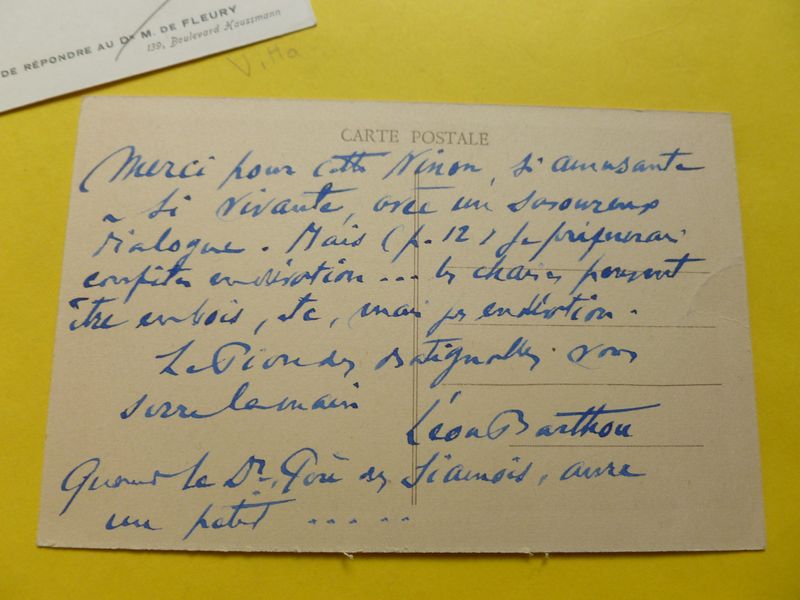 DE RÉPONDRE AU Dr M. DE FLEURY
139, Boulevard Haussmann
CARTE POSTALE
Merci pour cette Ninon, si amusante
si vivante, avec un savoureux
dialogue. Mais (p. 12) je préférerai
confites en dévotion... les chaises peuvent
être en bois, etc, mais pas en dévotion.
Le Pion des Batignolles vous
serre la main
Léon Barthou
Quand le Dr. des Siamois, aura
un petit .....